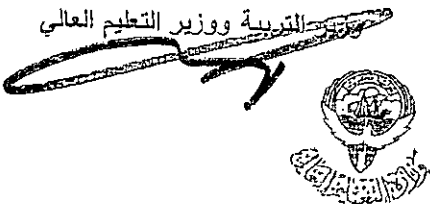 وزير التربية ووزير التعليم العالي
وزارة التعليم العالي